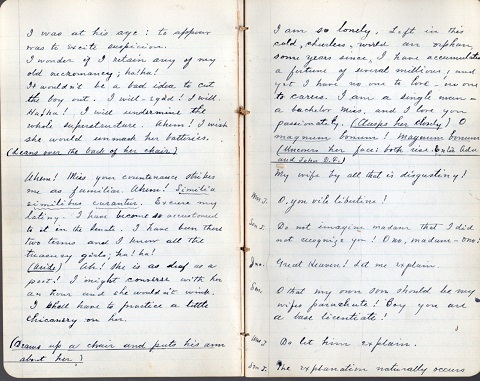 I was at his age: to appear
was to excite suspicion.
I wonder if I retain any of my
old necromancy; ha!ha!
It wouldn't be a bad idea to cut
the boy out. I will - egad! I will
Ha!ha! I will undermine the
whole superstructure. Ahem! I wish
she would unmask her batteries.
(Leans over the back of her chair)
Ahem! Miss your countenance strikes
me as familiar. Ahem! Similia
similibus curantur. Excuse my
latiny. I have become so accustomed
to it in the senate. I have been there
two terms and I know all the
treasury girls; ha! ha!
(Aside) Ah! She is as deaf as a
post! I might converse with her
an hour and she wouldn't wink.
I shall have to practice a little
chicanery on her.
(Draws up a chair and puts his arm
about her)
I am so lonely. Left in this
cold, cheerless, world an orphan,
some years since, I have accumulated
a fortune of several millions; and
yet I have no one to love - no one
to caress. I am a single man -
a bachelor Miss, and I love you
passionately. (Clasps her closely) O
magnum bonum! Magnum bonum
(Uncovers her face: both rise. Enter
and John D.F.)
My wife by all that is disgusting!
O, you vile libertine!
Do not imagine madam that I did
not recognize you! O no, madame - ono!
Jno. Great Heaven! Let me explain.
Sen. O that my own son should be my
wifes paramour! Boy you are
a base licentiate!
Do let him explain.
The explanation naturally occurs